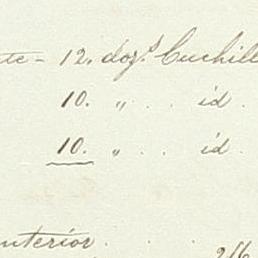 12. doz.s Cuchill
10. " . . id.
10. " . . id.
nterior . . . .